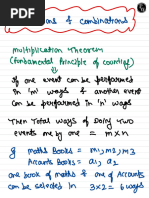 ons & combinations
multiplication theorem
(fundamental principle of counting)
If one event can be performed
in 'm' ways & another event
can be performed in 'n' ways
Then Total ways of Doing Two
events one by one = m×n
If maths Books = m1, m2, m3
Accounts Books = a1, a2
one book of maths & one of Accounts
can be selected in 3×2 = 6 ways